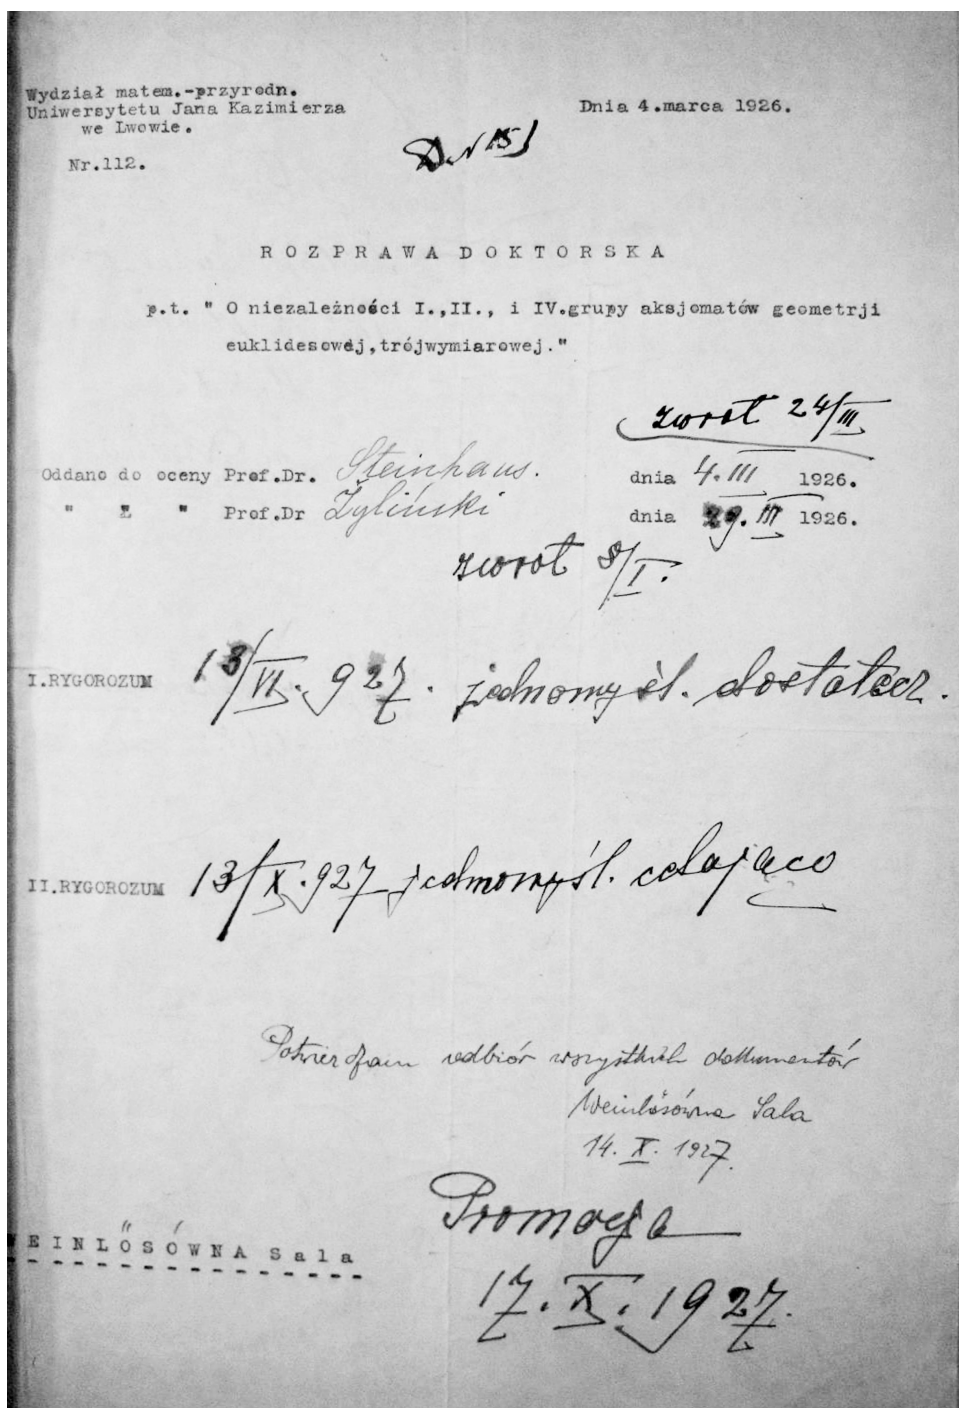 Wydział matem.-przyrodn.
Uniwersytetu Jana Kazimierza
we Lwowie.
Dnia 4.marca 1926.
Nr.112.
ROZPRAWA DOKTORSKA
p.t. " O niezależności I.,II., i IV.grupy aksjomatów geometrji
euklidesowej,trójwymiarowej."
zwrot 24/III
Oddano do oceny Prof.Dr. Steinhaus. dnia 4.III 1926.
" " Prof.Dr Żyliński dnia 29.III 1926.
zwrot 8/I.
I.RYGOROZUM 13/VI.927. jednomyśl. dostatecz.
II.RYGOROZUM 13/X.927 jednomyśl. celująco
Potwierdzam odbiór wszystkich dokumentów
Weinlösówna Sala
14. X. 1927.
Promocja
WEINLÖSÓWNA Sala
17.X.1927.